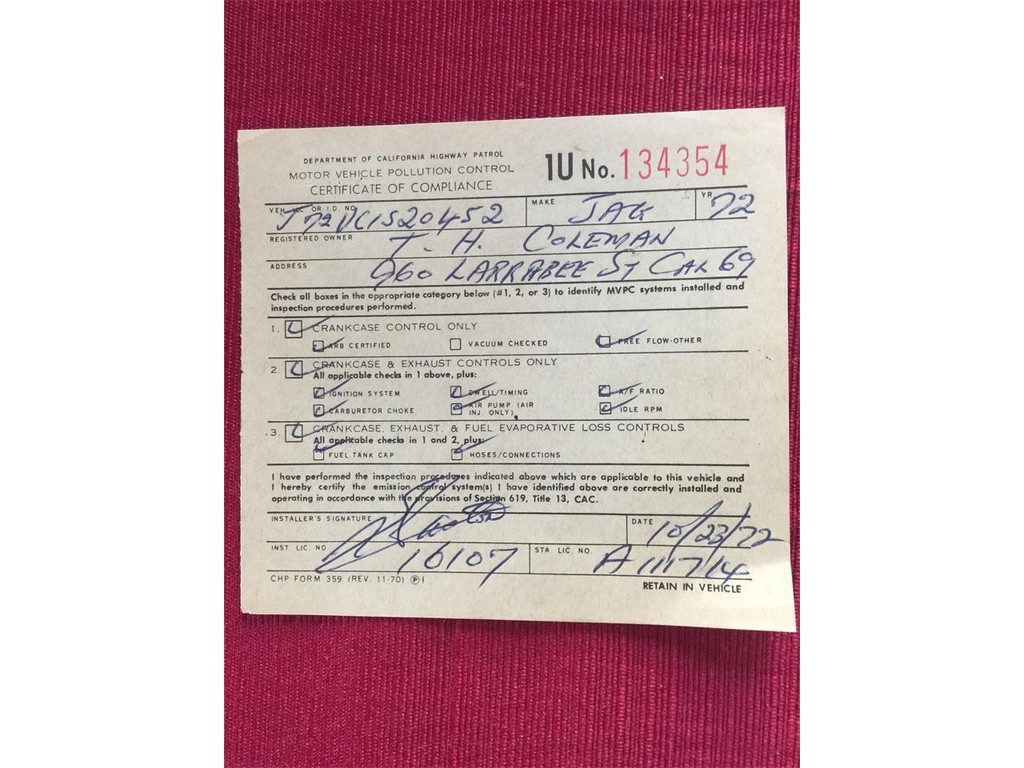 DEPARTMENT OF CALIFORNIA HIGHWAY PATROL
MOTOR VEHICLE POLLUTION CONTROL
CERTIFICATE OF COMPLIANCE
1U No. 134354
VEH. LIC. OR I.D. NO. J72V1C1S20452 MAKE JAG YR 72
REGISTERED OWNER T. H. COLEMAN
ADDRESS 960 LARRABEE ST CAL 69
Check all boxes in the appropriate category below (#1, 2, or 3) to identify MVPC systems installed and
inspection procedures performed.
1. CRANKCASE CONTROL ONLY
ARB CERTIFIED VACUUM CHECKED FREE FLOW-OTHER
2. CRANKCASE & EXHAUST CONTROLS ONLY
All applicable checks in 1 above, plus:
IGNITION SYSTEM DWELL/TIMING A/F RATIO
CARBURETOR CHOKE AIR PUMP (AIR INJ. ONLY) IDLE RPM
3. CRANKCASE, EXHAUST, & FUEL EVAPORATIVE LOSS CONTROLS
All applicable checks in 1 and 2, plus:
FUEL TANK CAP HOSES/CONNECTIONS
I have performed the inspection procedures indicated above which are applicable to this vehicle and
I hereby certify the emission control system(s) I have identified above are correctly installed and
operating in accordance with the provisions of Section 619, Title 13, CAC.
INSTALLER'S SIGNATURE DATE 10/23/72
INST. LIC. NO. 16107 STA. LIC. NO. A 111714
CHP FORM 359 (REV. 11-70) RETAIN IN VEHICLE